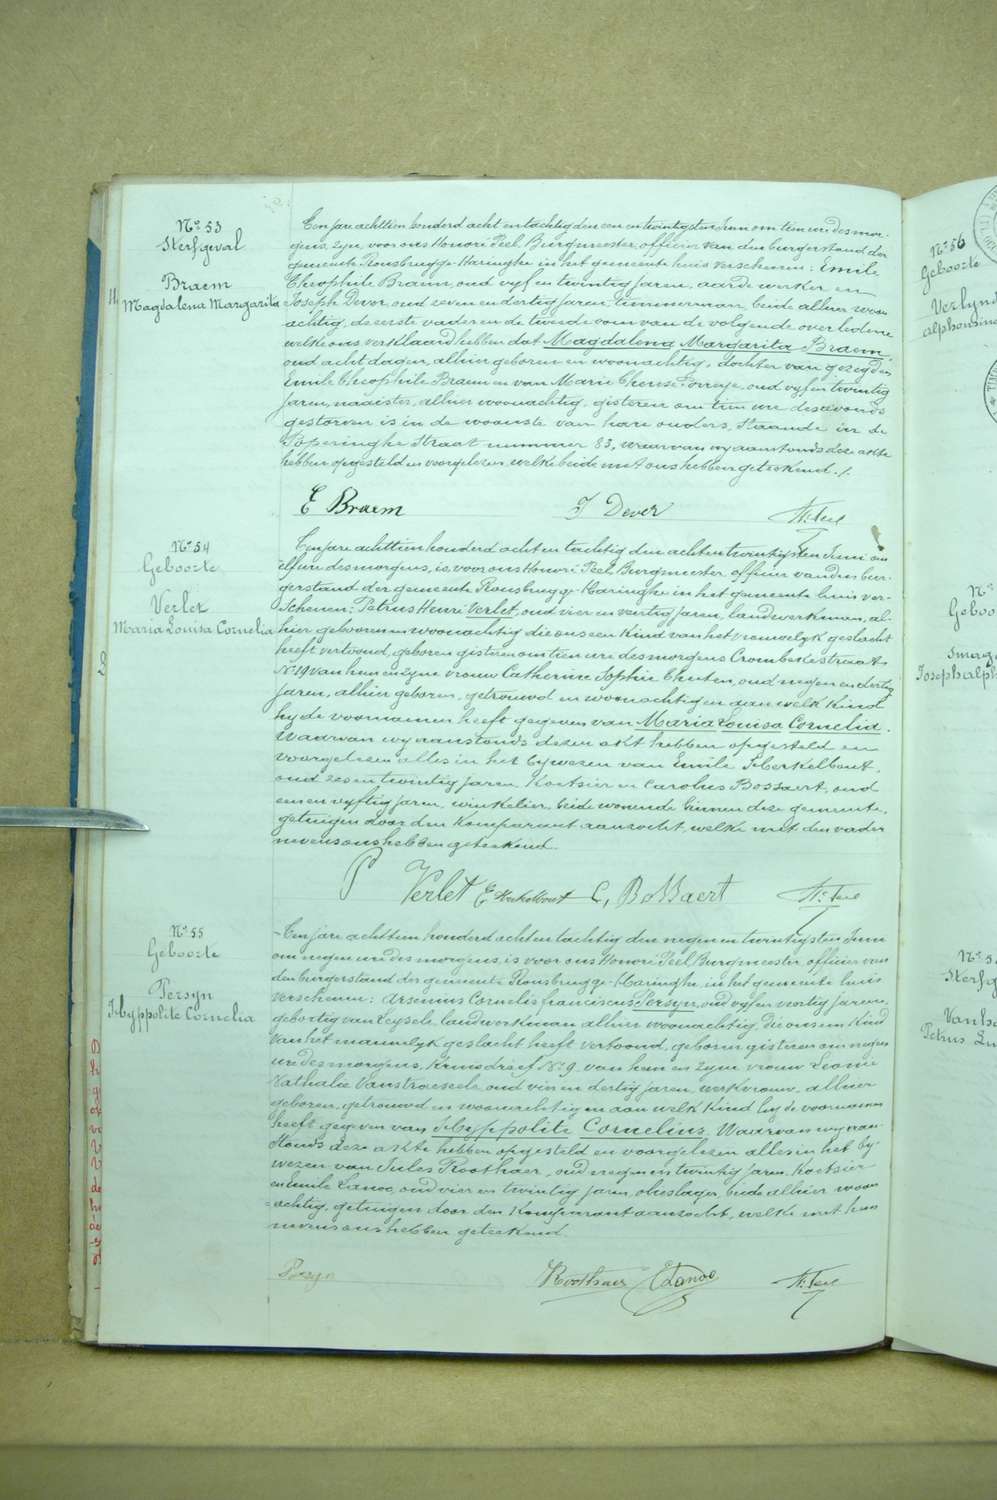 No 53
Sterfgeval
Braem
Magdalena Margarita
Ten jare achttien honderd acht en tachtig den een en twintigsten Juni om tien ure des mor-
gens, zyn voor ons Honoré Peel, Burgmeester, officier van den burgerstand der
gemeente Rousbrugge-Haringhe in het gemeente huis verschenen: Emile
Theophile Braem, oud vyf en twintig jaren, aarde werker en
Joseph Dever, oud zeven en dertig jaren, timmerman, beide alhier woon
achtig, de eerste vader en de tweede oom van de volgende overledene
welke ons verklaard hebben dat Magdalena Margarita Braem,
oud acht dagen, alhier geboren en woonachtig, dochter van gezegden
Emile Theophile Braem en van Marie Therese oud vyf en twintig
jaren, naaister, alhier woonachtig, gisteren om tien ure des avonds
gestorven is in de woonste van hare ouders, staande in de
Poperinghe Straat nummer 83, waarvan wy aanstonds deze akte
hebben opgesteld en voorgelezen, welke beide met ons hebben geteekend ./.
E Braem
J Dever
H. Peel
No 54
Geboorte
Verlet
Maria Louisa Cornelia
Ten jare achttien honderd acht en tachtig den acht en twintigsten Juni om
elf ure des morgens, is voor ons Honoré Peel, Burgmeester officier van den bur-
gerstand der gemeente Rousbrugge-Haringhe in het gemeente huis ver-
schenen: Petrus Henri Verlet, oud vier en veertig jaren, landswerkman, al-
hier geboren en woonachtig die ons een kind van het vrouwelyk geslacht
heeft vertoond, geboren gisteren om tien ure des morgens Crombekestraat
No 19 van hem en zyne vrouw Catherine Sophie oud negen en dertig
jaren, alhier geboren, getrouwd en woonachtig en aan welk kind
hy de voornamen heeft gegeven van Maria Louisa Cornelia.
Waarvan wy aanstonds dezen akt hebben opgesteld en
voorgelezen alles in het bywezen van Emile Herkelbout,
oud zes en twintig jaren, koetsier en Carolus Bossaert, oud
een en vyftig jaren, winkelier, beide wonende binnen deze gemeente,
getuigen door den komparant aanzocht, welke met den vader
nevens ons hebben geteekend.
P Verlet E Herkelbout C, Bossaert H. Peel
No 55
Geboorte
Persyn
Hyppolite Cornelia
Ten jare achttien honderd acht en tachtig den negen en twintigsten Juni
om negen ure des morgens, is voor ons Honoré Peel Burgmeester, officier van
den burgerstand der gemeente Rousbrugge-Haringhe, in het gemeente huis
verschenen: Arsenius Cornelis franciscus Persyn, oud vyf en veertig jaren,
geboortig van Leysele, landwerkman alhier woonachtig, die ons een kind
van het mannelyk geslacht heeft vertoond, geboren gisteren om negen
ure des morgens, Kruisdreef No 9, van hem en zyne vrouw Leonie
Nathalie Vanstraeseele, oud vier en dertig jaren, werkvrouw, alhier
geboren, getrouwd en woonachtig en aan welk kind hy de voornamen
heeft gegeven van Hyppolite Cornelius. Waarvan wy aan-
stonds deze akte hebben opgesteld en voorgelezen alles in het by-
wezen van Jules Roothaer, oud negen en twintig jaren, koetsier
en Emile Lanoo, oud vier en twintig jaren, olieslager, beide alhier woon
achtig, getuigen door den komparant aanzocht, welke met hem
nevens ons hebben geteekend.
Persyn
Roothaer
E Lanoo
H. Peel
No 56
Geboorte
Verlyn
alphonsine
No
Geboo
Joseph alph
No 5
Sterfg
Petrus Lu